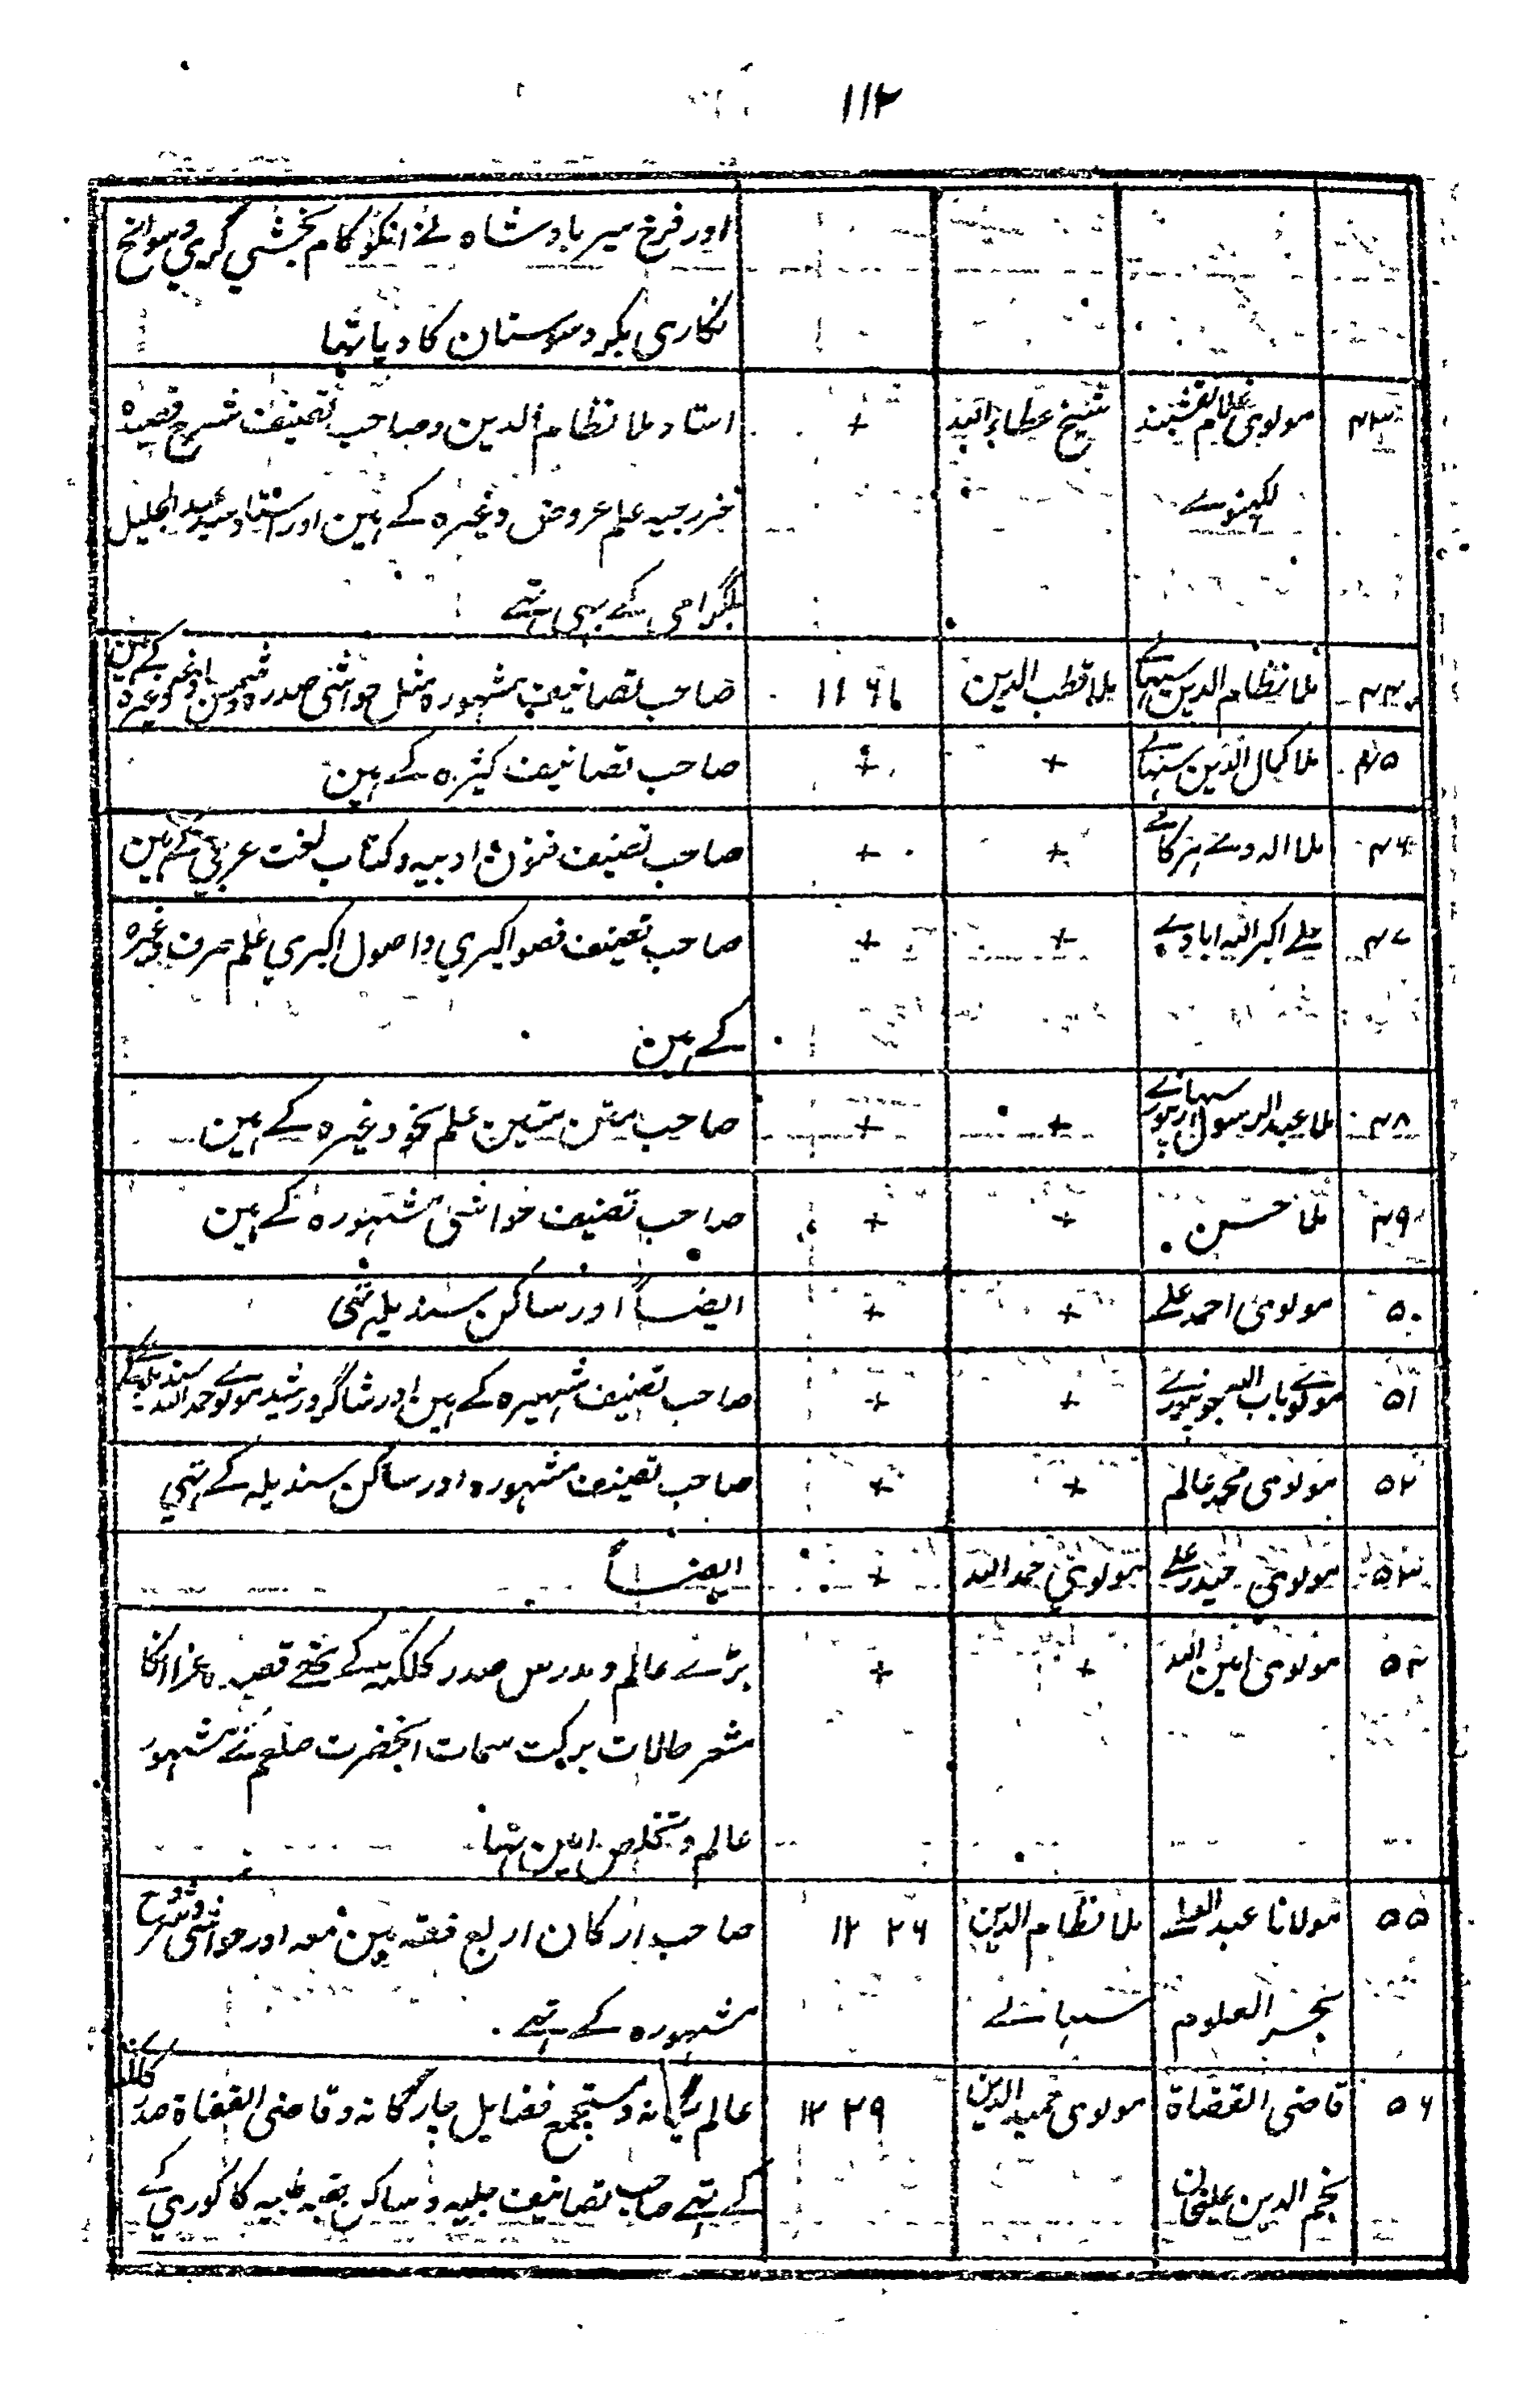 ۱۱۲
اور فرخ سیر بادشاہ نے انکو کام بخشی گری و سوانح
نگاری بکر و سوستان کا دیا تہا
۴۳ مولوی غلام نقشبند شیخ عطاء اللہ + استاد ملا نظام الدین و صاحب تصنیف شرح قصیدہ
لکہنوے خزرجیہ علم عروض وغیرہ کے ہین اور استاد سید عبد الجلیل
بلگرامی کے بہی تہے
۴۴ ملا نظام الدین سہالے ملا قطب الدین ۱۱۶۱ صاحب تصانیف مشہورہ مثل حواشی صدرہ و شمس وغیرہ کے ہین
۴۵ ملا کمال الدین سہالے + + صاحب تصانیف کثیرہ کے ہین
۴۶ ملا الہ + + صاحب تصنیف فنون ادبیہ و کتاب لغت عربی کے ہین
۴۷ علے اکبر الہ ابادے + + صاحب تصنیف فصو اکبری و اصول اکبری علم صرف وغیرہ
کے ہین
۴۸ ملا عبد الرسول سہارنپورے + + صاحب متن متین علم نحو وغیرہ کے ہین
۴۹ ملا حسن + + صاحب تصنیف حواشی مشہورہ کے ہین
۵۰ مولوی احمد علے + + ایضاً اور ساکن سندیلہ تہی
۵۱ مولوے باب اللہ جونپورے + + صاحب تصنیف شہیرہ کے ہین اور شاگرد رشید مولوے حمد اللہ سندیلے کے
۵۲ مولوی محمد عالم + + صاحب تصنیف مشہورہ اور ساکن سندیلہ کے تہی
۵۳ مولوی حیدر علے مولوی حمد اللہ + ایضاً
۵۴ مولوی امین اللہ + + بڑے عالم و مدرس صدر کلکتہ کے تہے قصیدہ غزا انکا
مشعر حالات برکت سمات انحضرت صلعم مشہور
عالم و تخلص امین تہا
۵۵ مولانا عبد العلے ملا نظام الدین ۱۲۲۶ صاحب ارکان اربع فقہ مین تہہ اور حواشی و شروح
بحر العلوم سہالے مشہورہ کے تہے
۵۶ قاضی القضاۃ مولوی حمید الدین ۱۲۲۹ عالم یگانہ و مستجمع فضایل چارگانہ و قاضی القضاۃ صدر کلکتہ
نجم الدین علیخان کے تہے صاحب تصانیف جلیہ و ساکن قصبہ کاکوری کے